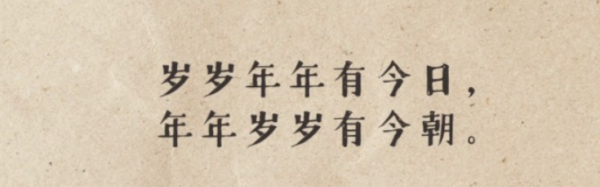 岁岁年年有今日，
年年岁岁有今朝。